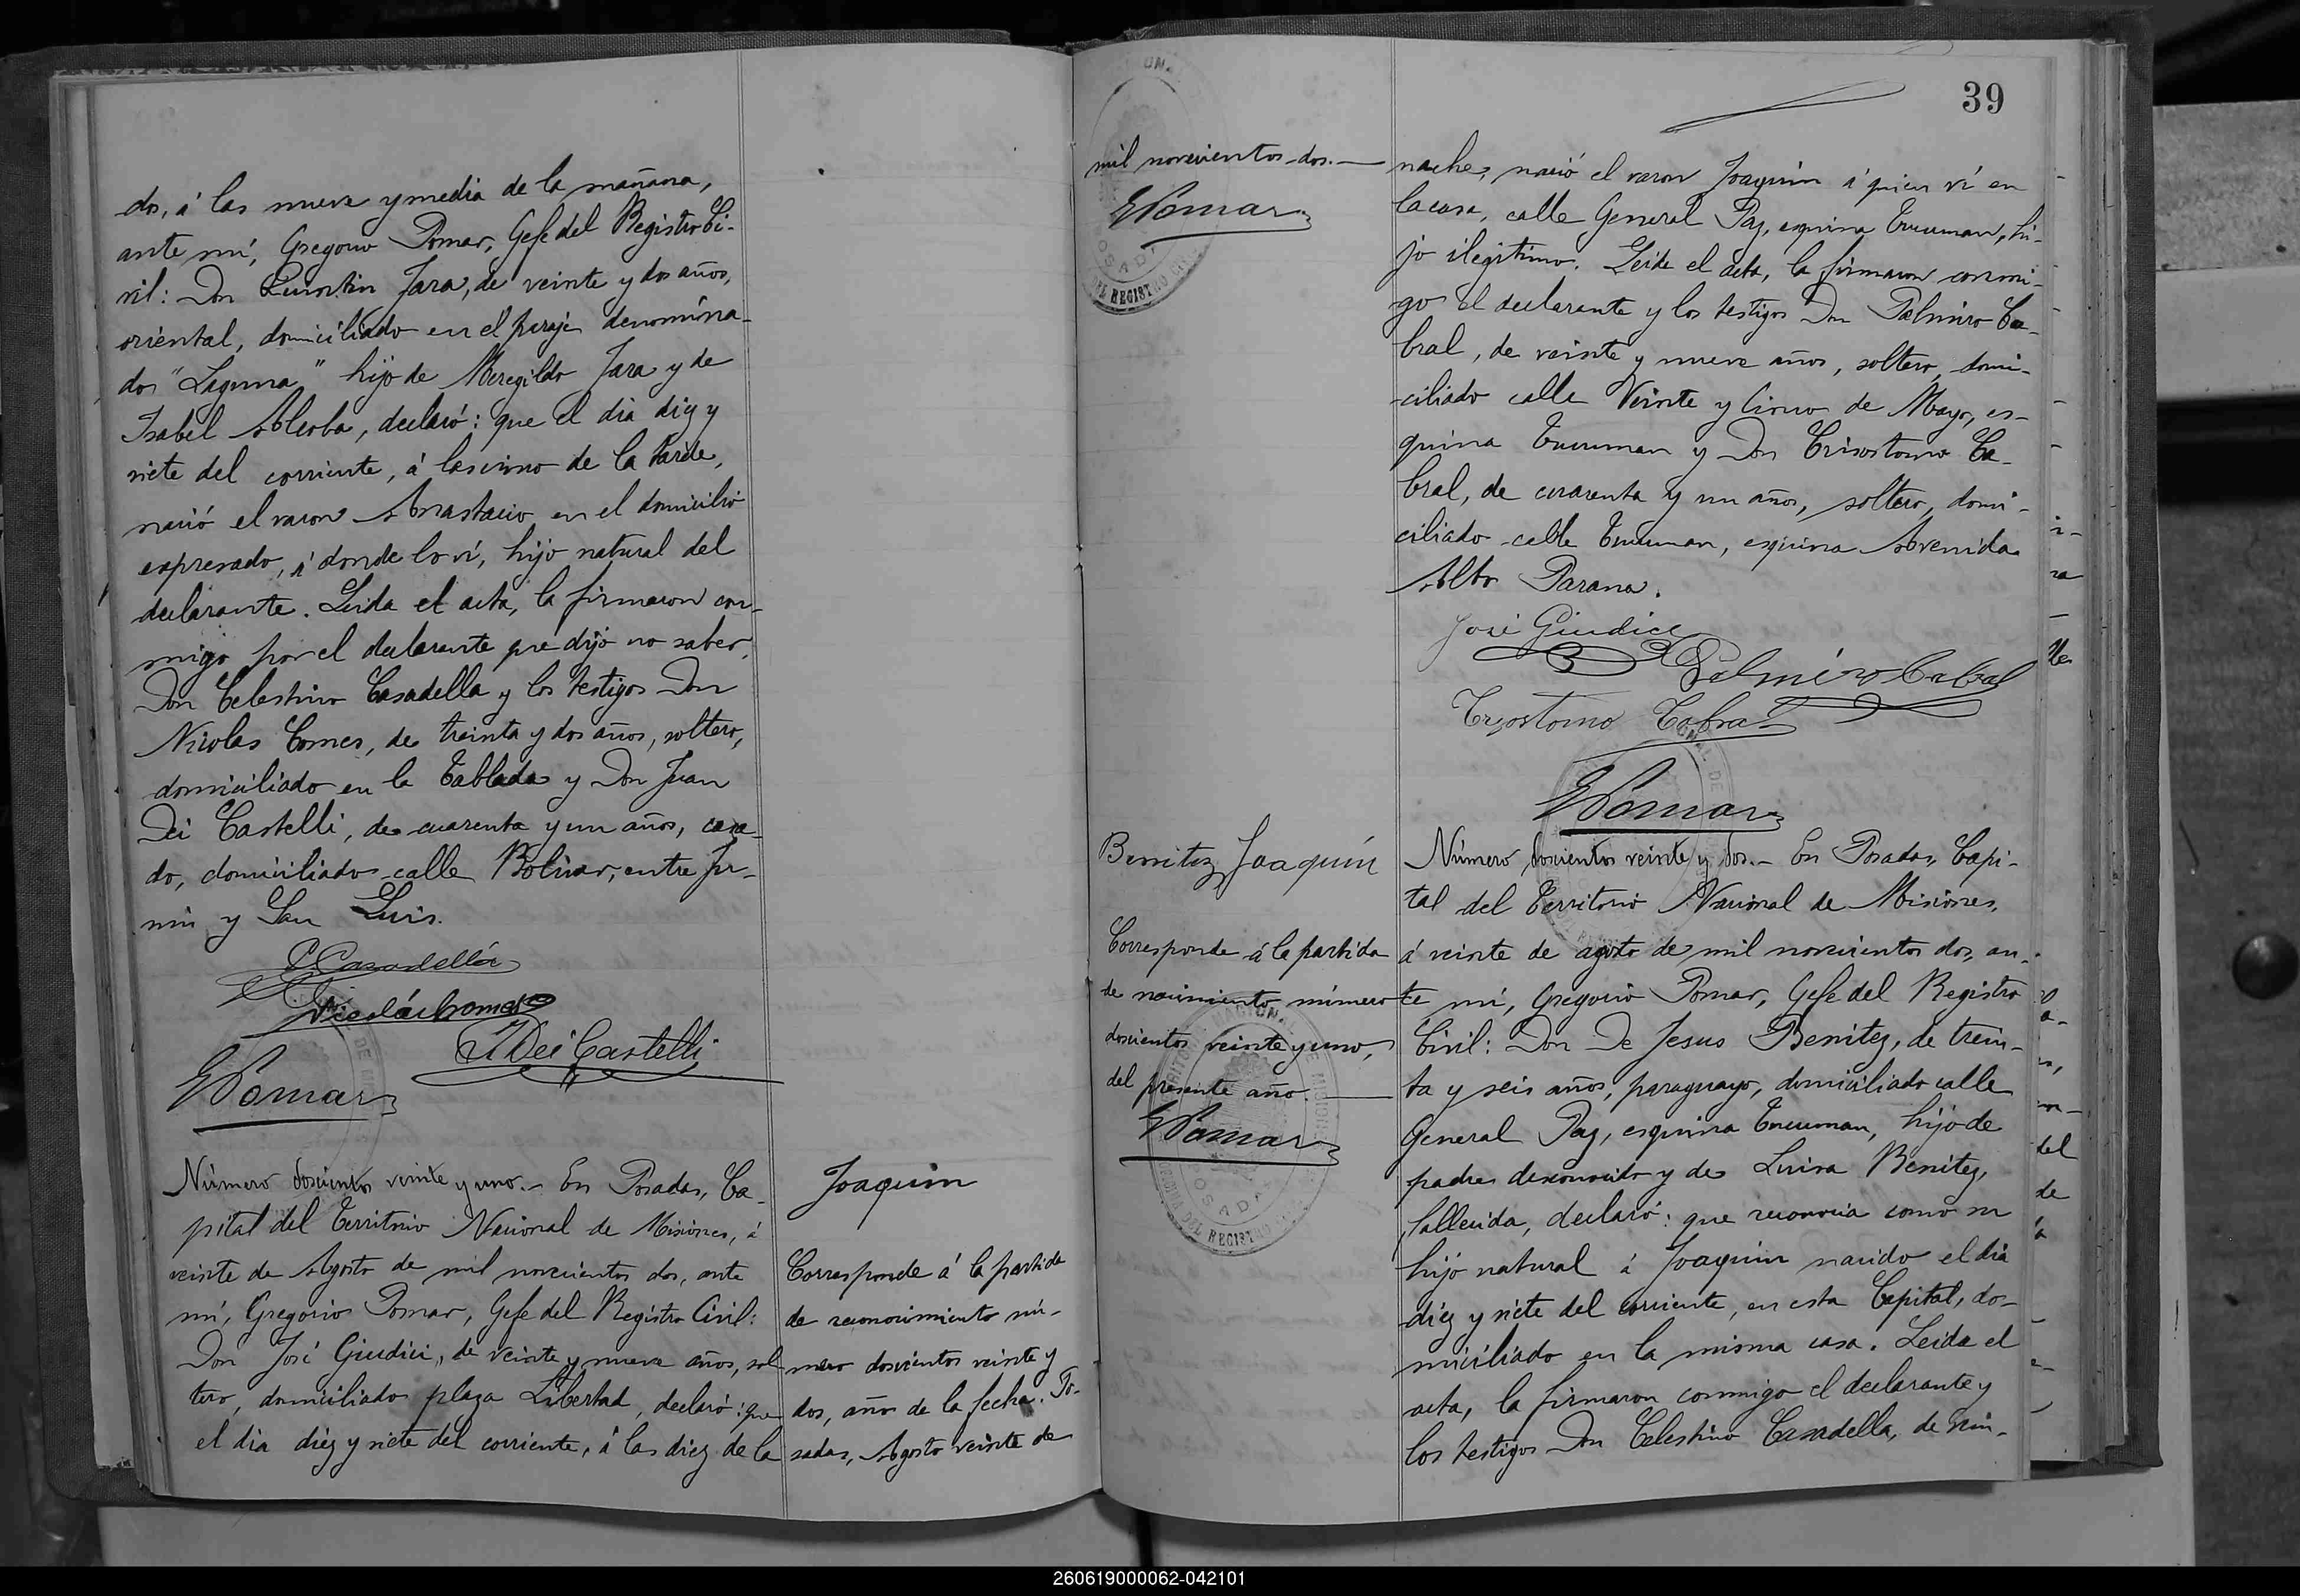 dos, á las nueve y media de la mañana,
ante mí, Gregorio Pomar, Gefe del Registro Ci-
vil: Don Quintin Jara, de veinte y dos años,
oriental, domiciliado en el paraje denomina-
do "Laguna" hijo de Meregildo Jara y de
Isabel declaró: que el dia diez y
siete del corriente, á las cinco de la tarde,
nació el varon Anastacio en el domicilio
expresado, á donde lo ví, hijo natural del
declarante. Leida el acta, la firmaron con-
migo por el declarante que dijo no saber,
Don Celestino Casadella y los testigos Don
Nicolas Comes, de treinta y dos años, soltero,
domiciliado en la Tablada y Don Juan
Dei Castelli, de cuarenta y un años, casa-
do, domiciliado calle Bolivar, entre Ju-
nin y San Luis.
C Casadella
Nicolás Comes
J Dei Castelli
G Pomar
Número doscientos veinte y uno.- En Posadas, Ca-
pital del Territorio Nacional de Misiones, á
veinte de Agosto de mil novecientos dos, ante
mí, Gregorio Pomar, Gefe del Registro Civil:
Don José Giudici, de veinte y nueve años, sol
tero, domiciliado plaza Libertad, declaró: que
el dia diez y siete del corriente, á las diez de la
Joaquin
Corresponde á la partida
de reconocimiento nú-
mero doscientos veinte y
dos, año de la fecha. Po-
sadas, Agosto veinte de
mil novecientos dos.-
G Pomar
39
noche, nació el varon Joaquin á quien ví en
la casa, calle General Paz, esquina Tucuman, hi-
jo ilegitimo. Leida el acta, la firmaron conmi-
go el declarante y los testigos Don Palmiro Ca-
bral, de veinte y nueve años, soltero, domi-
ciliado calle Veinte y Cinco de Mayo, es-
quina Tucuman y Don Crisostomo Ca-
bral, de cuarenta y un años, soltero, domi-
ciliado calle Tucuman, esquina Avenida
Alto Parana.
José Giudice
Palmiro Cabral
Crisostomo Cabral
G Pomar
Benitez, Joaquín
Corresponde á la partida
de nacimiento número
doscientos veinte y uno,
del presente año.
G Pomar
Número doscientos veinte y dos.- En Posadas, Capi-
tal del Territorio Nacional de Misiones,
á veinte de agosto de mil novecientos dos, an-
te mí, Gregorio Pomar, Gefe del Registro
Civil: Don De Jesus Benitez, de trein-
ta y seis años, paraguayo, domiciliado calle
General Paz, esquina Tucuman, hijo de
padre desconocido y de Luisa Benitez,
fallecida, declaró: que reconocia como su
hijo natural á Joaquin nacido el dia
diez y siete del corriente, en esta Capital, do-
miciliado en la misma casa. Leida el
acta, la firmaron conmigo el declarante y
los testigos Don Celestino Casadella, de vein-
260619000062-042101